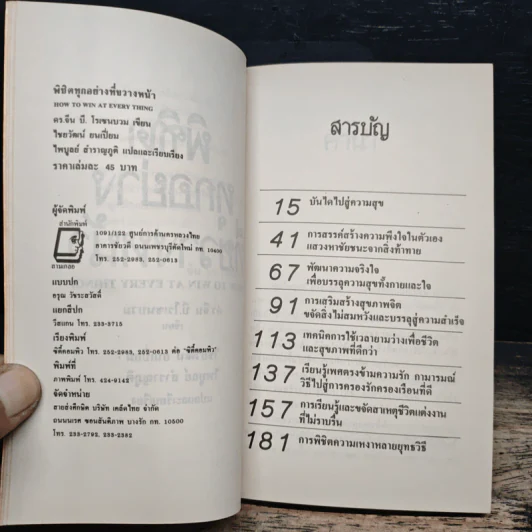 พิชิตทุกอย่างที่ขวางหน้า
HOW TO WIN AT EVERY THING
ดร.จีน บี. โรเซนบวม เขียน
ไชยวัฒน์ ยนเปี่ยม
ไพบูลย์ สำราญภูติ แปลและเรียบเรียง
ราคาเล่มละ 45 บาท
ผู้จัดพิมพ์
สำนักพิมพ์
1091/122 ศูนย์การค้านครหลวงไทย
อาคารชัยวดี ถนนเพชรบุรีตัดใหม่ กท. 10400
โทร. 252-2983, 252-0613
แบบปก
ครุณ วัชระสวัสดิ์
แยกสีปก
โสแกน โทร. 233-3715
เรียงพิมพ์
ซีตี้คอมพิว โทร. 252-2983, 252-0613 ต่อ "ซีตี้คอมพิว"
พิมพ์ที่
ภาพพิมพ์ โทร. 424-9142
จัดจำหน่าย
สายส่งศึกษิต บริษัท เคล็ดไทย จำกัด
ถนนนเรศ ซอยสันติภาพ บางรัก กท. 10500
โทร. 233-2792, 233-2382
สารบัญ
15 บันไดไปสู่ความสุข
41 การสรรค์สร้างความพึงใจในตัวเอง
แสวงหาชัยชนะจากสิ่งท้าทาย
67 พัฒนาความจริงใจ
เพื่อบรรลุความสุขทั้งกายและใจ
91 การเสริมสร้างสุขภาพจิต
ขจัดสิ่งไม่สมหวังและบรรลุสู่ความสำเร็จ
113 เทคนิคการใช้เวลายามว่างเพื่อชีวิต
และสุขภาพที่ดีกว่า
137 เรียนรู้เพศตรงข้ามความรัก กามารมณ์
วิธีไปสู่การครองรักครองเรือนที่ดี
157 การเรียนรู้และขจัดสาเหตุชีวิตแต่งงาน
ที่ไม่ราบรื่น
181 การพิชิตความเหงาหลายยุทธวิธี